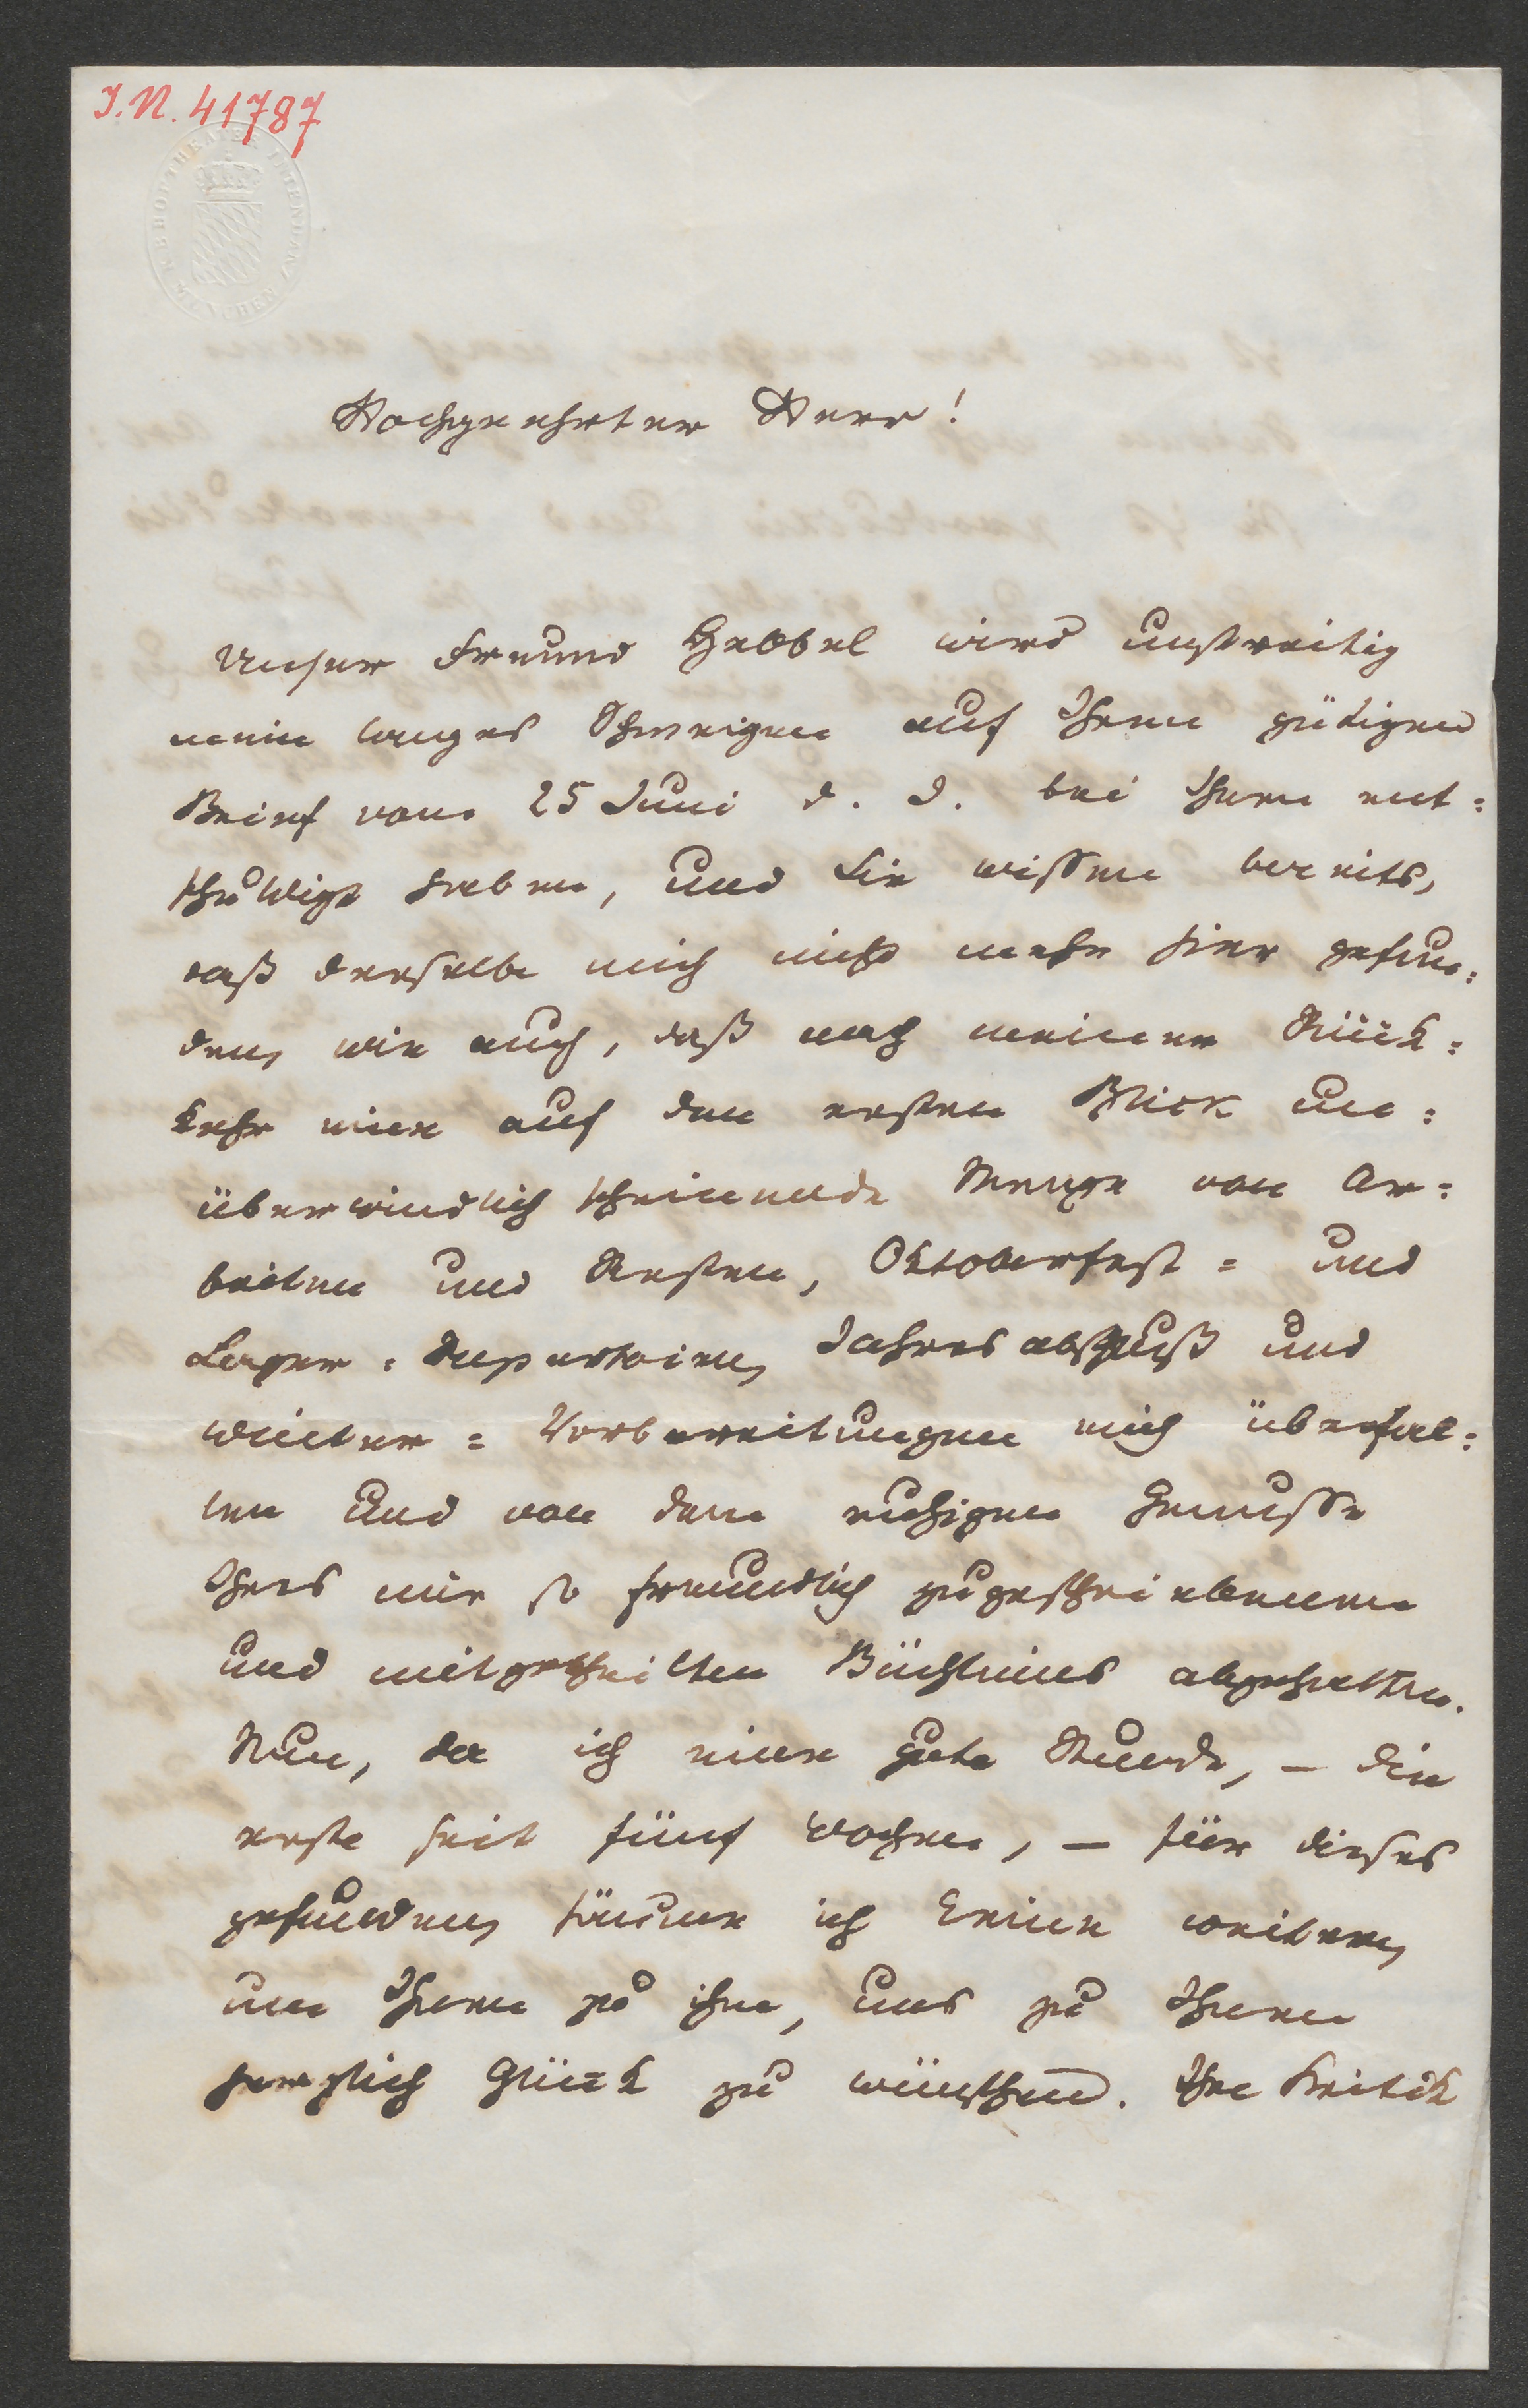 I.N. 41787
K. B. HOFTHEATER INTENDANZ
MÜNCHEN
Hochgeehrter Herr!
Unser Freund Hebbel wird unstreitig
mein langes Schweigen auf Ihren gütigen
Brief vom 25 Juni d. J. bei Ihnen ent=
schuldigt haben, und Sie wissen bereits,
daß derselbe mich nicht mehr hier gefun=
den, wie auch, daß nach meiner Rück=
kehr eine auf den ersten Blick un=
überwindlich scheinende Menge von Ar=
beiten und Resten, Oktoberfest= und
Lager=Repertoiren, Jahresabschluß und
Winter=Vorbereitungen mich überfal=
len und von dem ruhigen Genusse
Ihres mir so freundlich zugeschriebenen
und mitgetheilten Büchleins abgehalten.
Nun, da ich eine gute Stunde, – die
erste seit fünf Wochen, – für dieses
gefunden, säume ich keine weitere,
um Ihnen zu ihm, uns zu Ihnen
herzlich Glück zu wünschen. Ihre Kritik